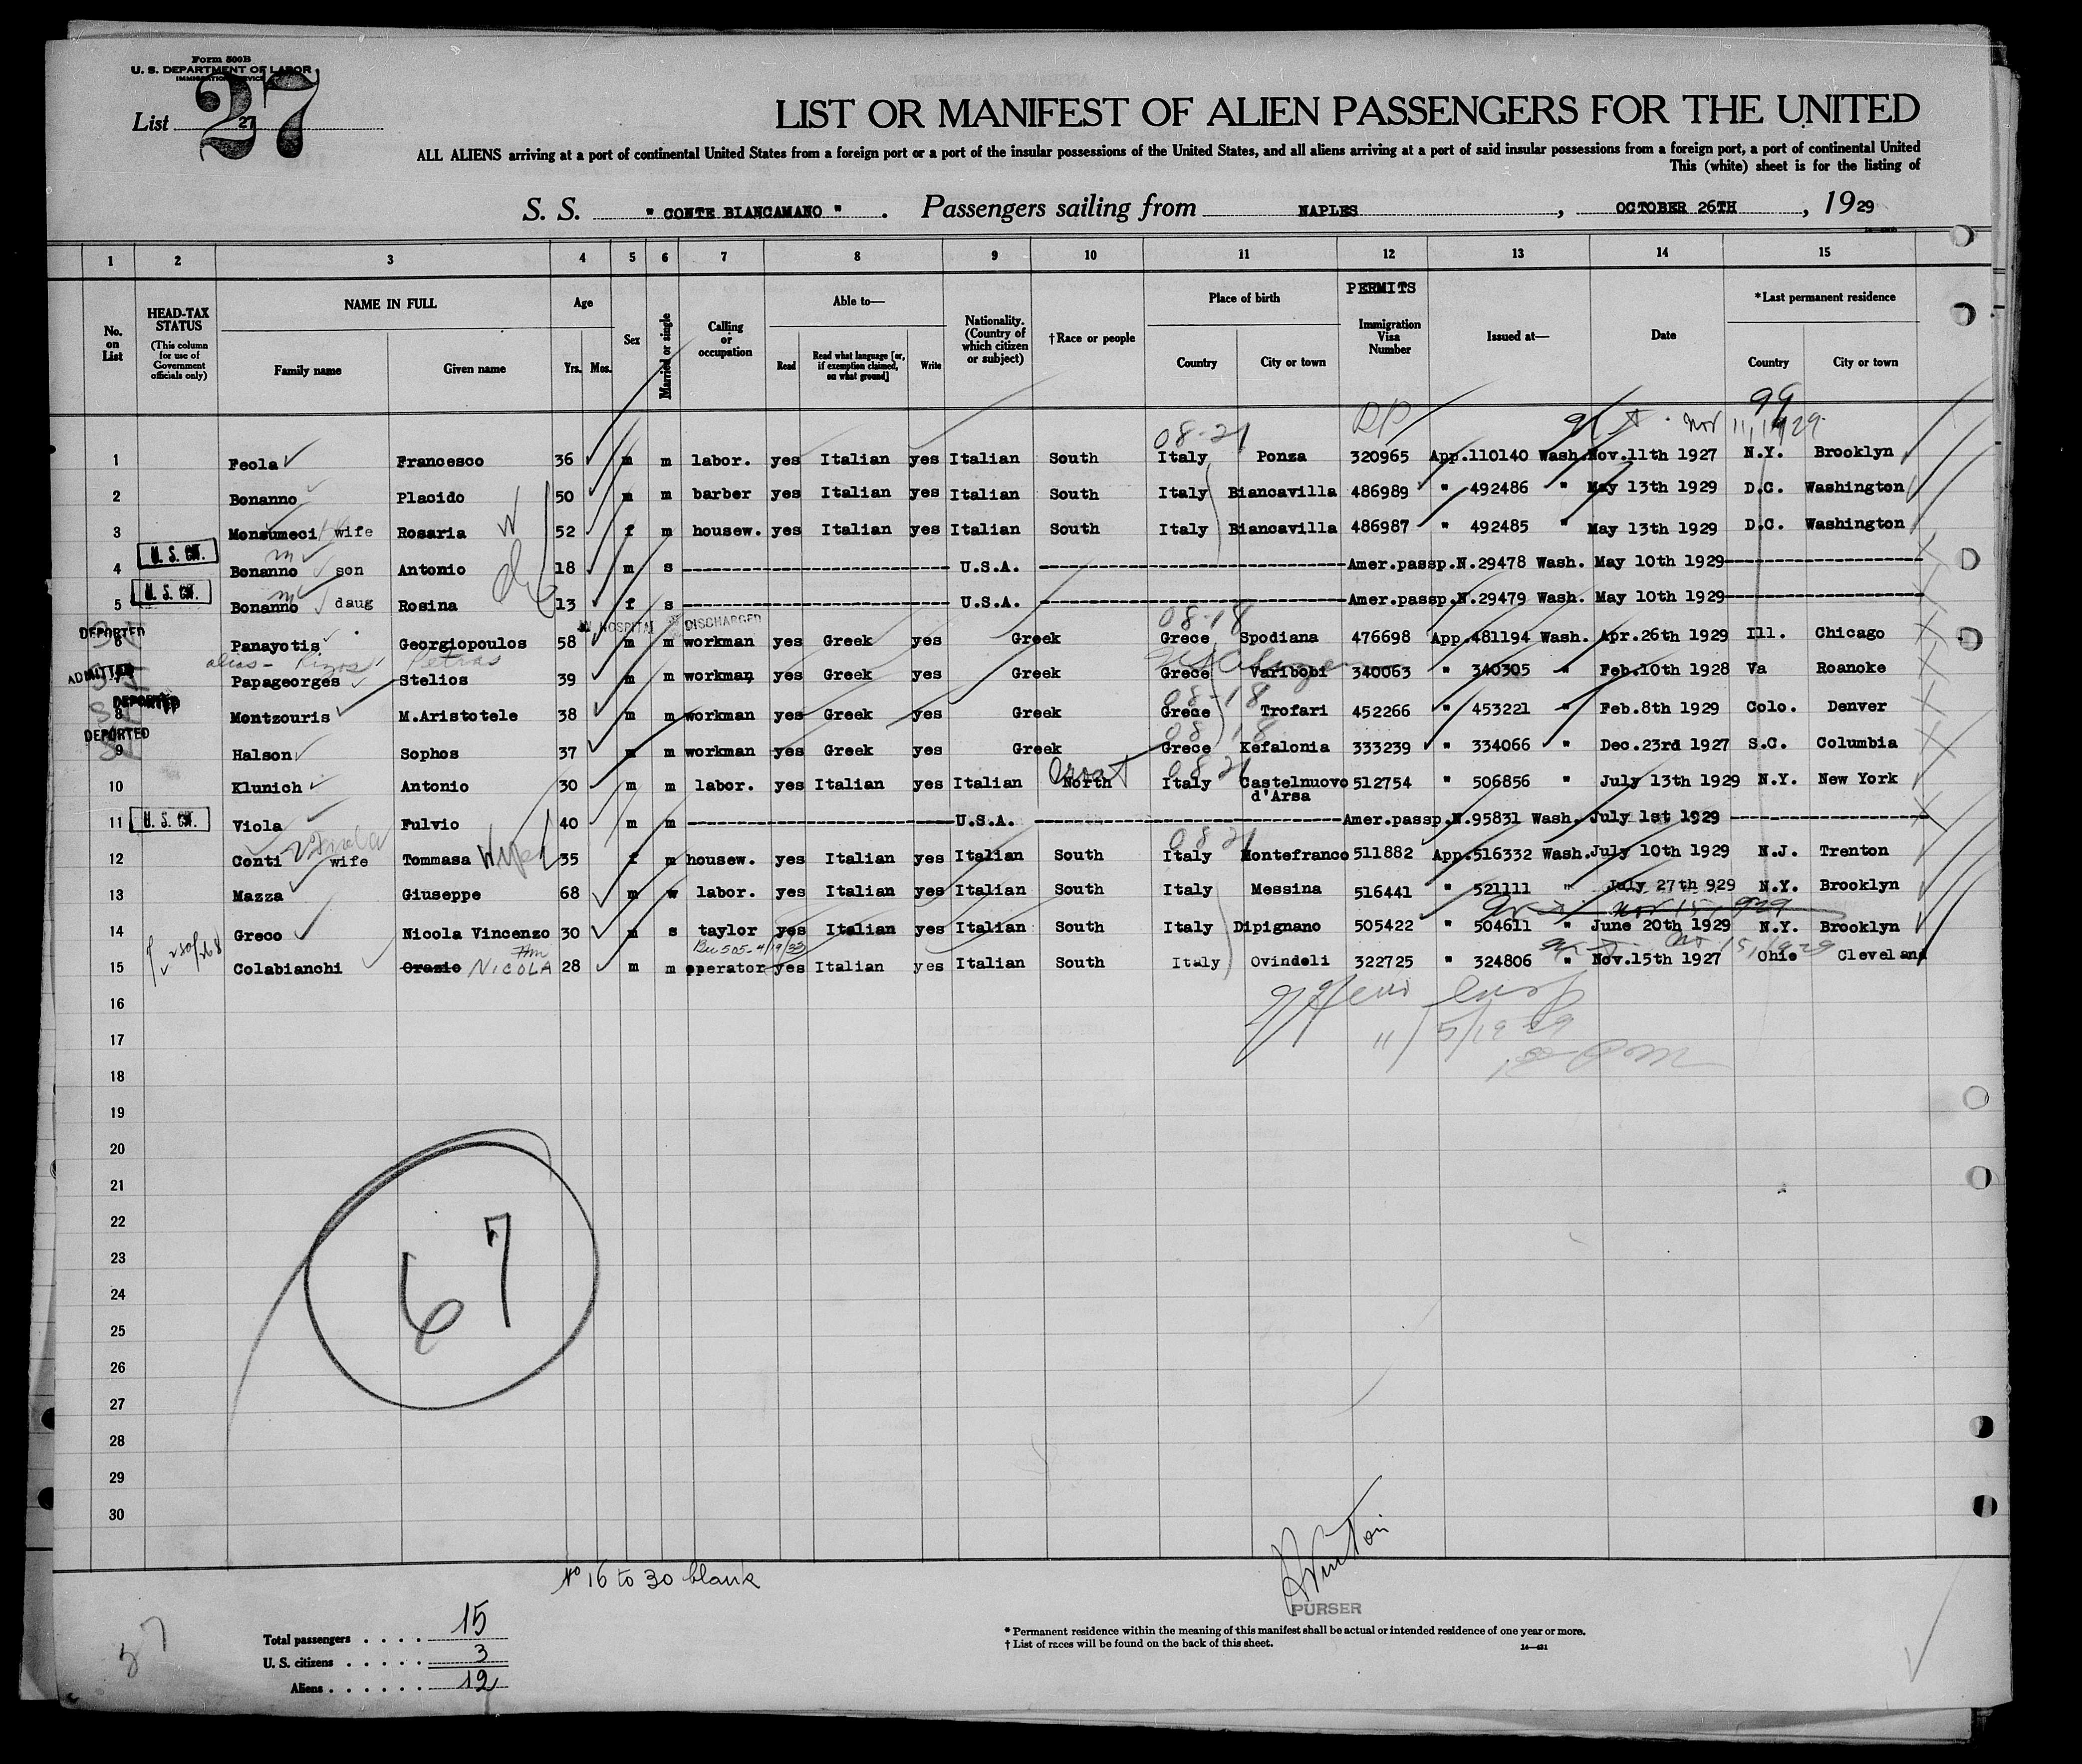 Form 500B
U. S. DEPARTMENT OF LABOR
IMMIGRATION SERVICE
List 27
27
LIST OR MANIFEST OF ALIEN PASSENGERS FOR THE UNITED
ALL ALIENS arriving at a port of continental United States from a foreign port or a port of the insular possessions of the United States, and all aliens arriving at a port of said insular possessions from a foreign port, a port of continental United
This (white) sheet is for the listing of
S. S. " CONTE BIANCAMANO " . Passengers sailing from NAPLES , OCTOBER 26TH , 1929
1 2 3 4 5 6 7 8 9 10 11 12 13 14 15
No. on List
HEAD-TAX STATUS
(This column for use of Government officials only)
NAME IN FULL
Family name Given name
Age
Yrs. Mos.
Sex
Married or single
Calling or occupation
Able to—
Read Read what language [or, if exemption claimed, on what ground] Write
Nationality. (Country of which citizen or subject)
†Race or people
Place of birth
Country City or town
PERMITS
Immigration Visa Number
Issued at—
Date
*Last permanent residence
Country City or town
99
08-21 Nov 11, 1929
1 Feola Francesco 36 m m labor. yes Italian yes Italian South Italy Ponza 320965 App.110140 Wash. Nov.11th 1927 N.Y. Brooklyn
2 Bonanno Placido 50 m m barber yes Italian yes Italian South Italy Biancavilla 486989 " 492486 " May 13th 1929 D.C. Washington
3 Monsumeci wife Rosaria 52 f m housew. yes Italian yes Italian South Italy Biancavilla 486987 " 492485 " May 13th 1929 D.C. Washington
U. S. Cit.
4 Bonanno son Antonio 18 m s U.S.A. Amer.passp.N.29478 Wash. May 10th 1929
U. S. Cit.
5 Bonanno daug Rosina 13 f s U.S.A. Amer.passp.N.29479 Wash. May 10th 1929
IN HOSPITAL DISCHARGED 08-18
DEPORTED
6 Panayotis Georgiopoulos 58 m m workman yes Greek yes Greek Grece Spodiana 476698 App.481194 Wash. Apr.26th 1929 Ill. Chicago
alias - Rizos Petros
ADMITTED
Papageorges Stelios 39 m m workman yes Greek yes Greek Grece Varibobi 340063 " 340305 " Feb.10th 1928 Va Roanoke
08-18
DEPORTED
8 Montzouris M.Aristotele 38 m m workman yes Greek yes Greek Grece Trofari 452266 " 453221 " Feb.8th 1929 Colo. Denver
08 18
DEPORTED
9 Halson Sophos 37 m m workman yes Greek yes Greek Grece Kefalonia 333239 " 334066 " Dec.23rd 1927 S.C. Columbia
Croat 08 21
10 Klunich Antonio 30 m m labor. yes Italian yes Italian North Italy Castelnuovo d'Arsa 512754 " 506856 " July 13th 1929 N.Y. New York
11 U. S. Cit. Viola Fulvio 40 m m U.S.A. Amer.passp.N.95831 Wash. July 1st 1929
08 21
12 Conti Viola wife Tommasa Wife 35 f m housew. yes Italian yes Italian South Italy Montefranco 511882 App.516332 Wash. July 10th 1929 N.J. Trenton
13 Mazza Giuseppe 68 m w labor. yes Italian yes Italian South Italy Messina 516441 " 521111 " July 27th 929 N.Y. Brooklyn
Nov 15, 1929
14 Greco Nicola Vincenzo 30 m s taylor yes Italian yes Italian South Italy Dipignano 505422 " 504611 " June 20th 1929 N.Y. Brooklyn
15, 1929
15 Colabianchi Orazio NICOLA 28 m m operator yes Italian yes Italian South Italy Ovindoli 322725 " 324806 " Nov.15th 1927 Ohio Cleveland
16
17
11/5/1929
18
19
20
21
22
23
24
25
26
27
28
29
30
67
No 16 to 30 blank
PURSER
Total passengers . . . . 15
U. S. citizens . . . . . 3
Aliens . . . . . . 12
* Permanent residence within the meaning of this manifest shall be actual or intended residence of one year or more.
† List of races will be found on the back of this sheet.
14—421